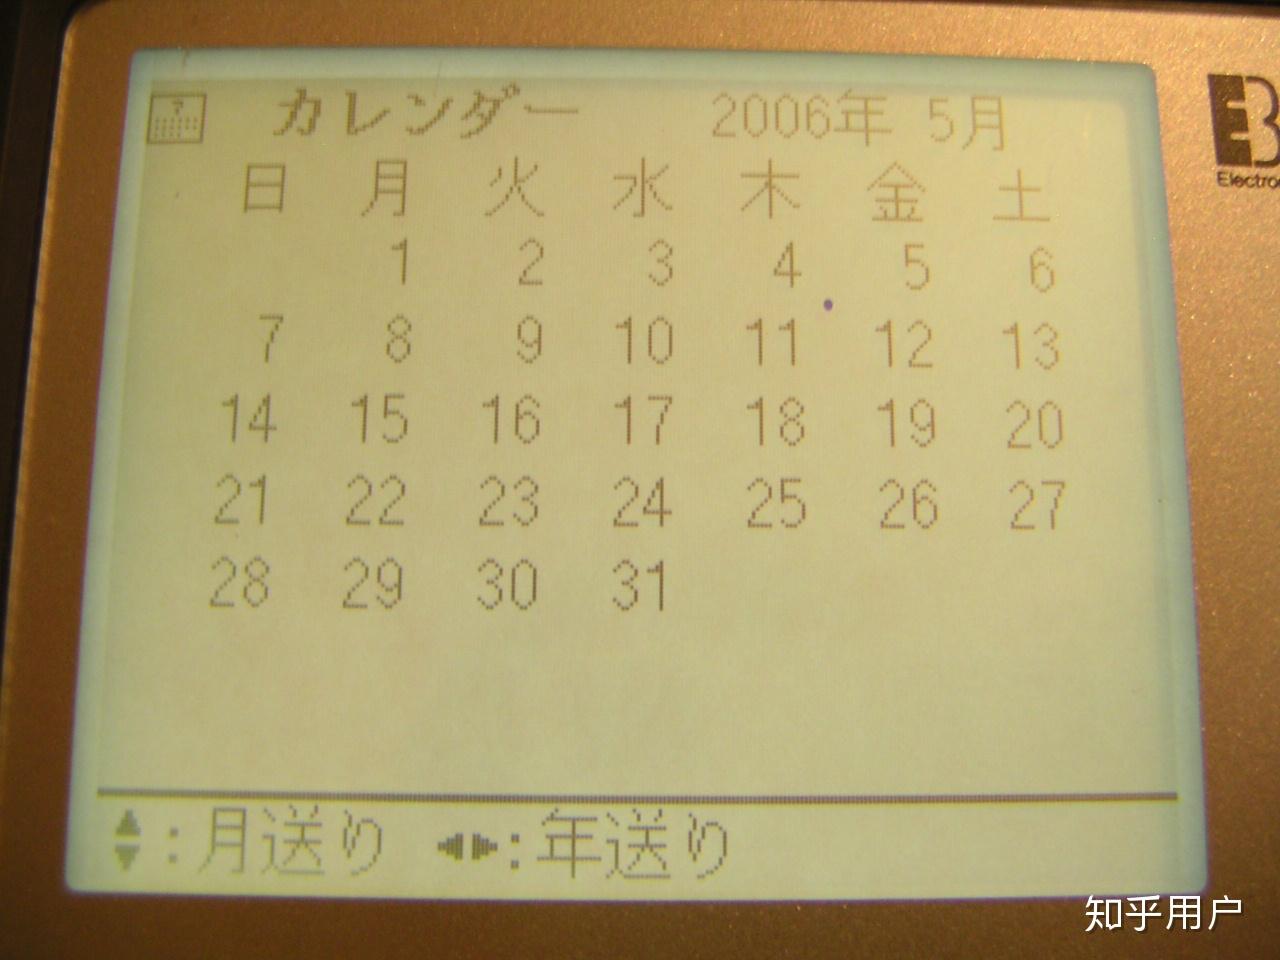 カレンダー 2006年 5月
日 月 火 水 木 金 土
1 2 3 4 5 6
7 8 9 10 11 12 13
14 15 16 17 18 19 20
21 22 23 24 25 26 27
28 29 30 31
▲▼:月送り ◀▶:年送り
EB
知乎用户